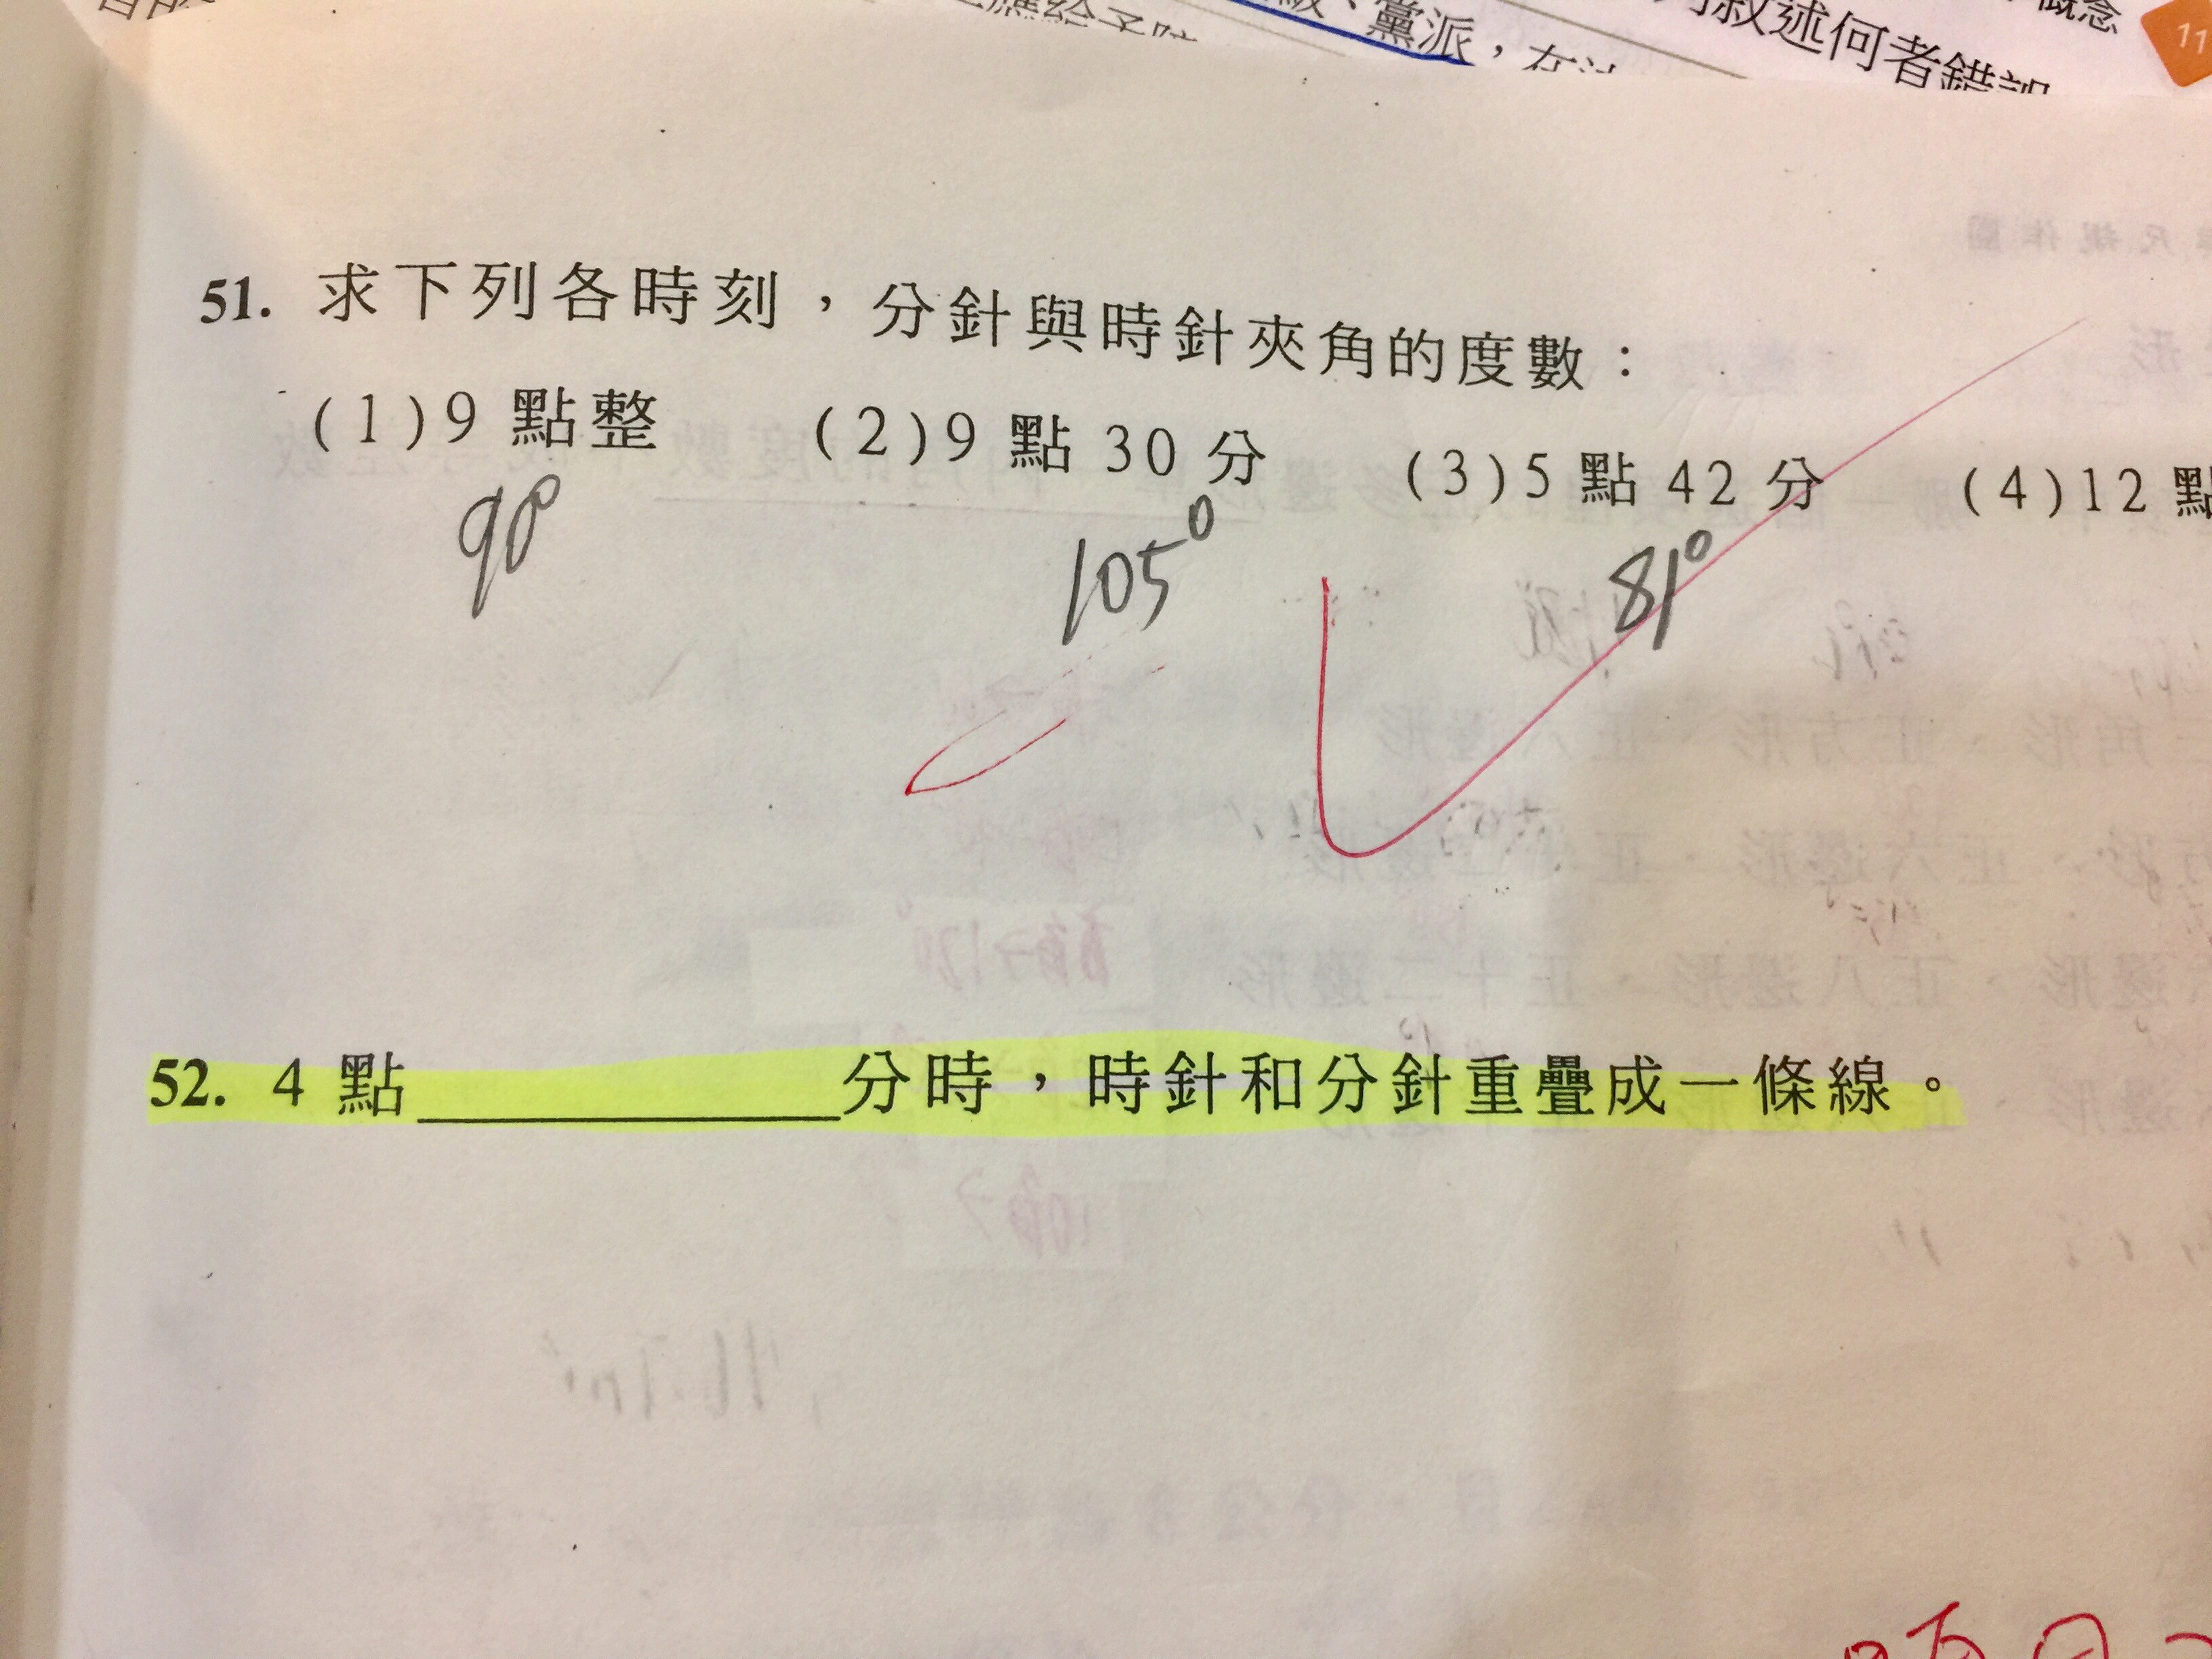 應給予
級、黨派，在法
敘述何者錯誤
概念
11
51. 求下列各時刻，分針與時針夾角的度數：
(1)9 點整 (2)9 點 30 分 (3)5 點 42 分 (4)12 點
90° 105° 81°
52. 4 點____________分時，時針和分針重疊成一條線。